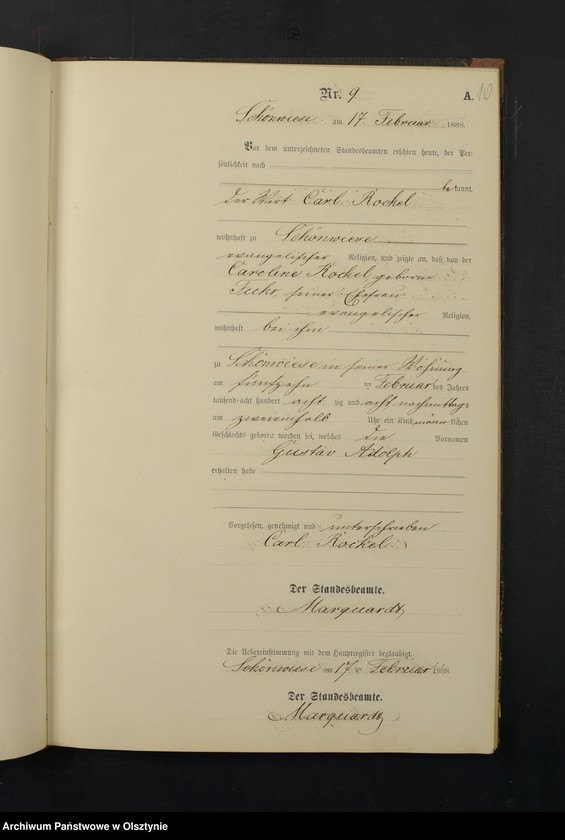 Nr. 9
A. 10
Schönwiese am 17. Februar 1888.
Vor dem unterzeichneten Standesbeamten erschien heute, der Per-
sönlichkeit nach
bekannt,
der Wirt Carl Rockel
wohnhaft zu Schönwiese
evangelischer Religion, und zeigte an, daß von der
Caroline Rockel, geborne
Fuhr, seiner Ehefrau
evangelischer Religion,
wohnhaft bei ihm
zu Schönwiese in seiner Wohnung
am fünfzehn ten Februar des Jahres
tausend acht hundert acht zig und acht nachmittags
um zweieinhalb Uhr ein Kind männlichen
Geschlechts geboren worden sei, welches die Vornamen
Gustav Adolph
erhalten habe
Vorgelesen, genehmigt und unterschrieben
Carl Rockel
Der Standesbeamte.
Marquardt
Die Uebereinstimmung mit dem Hauptregister beglaubigt.
Schönwiese am 17 ten Februar 1888
Der Standesbeamte.
Marquardt
Archiwum Państwowe w Olsztynie